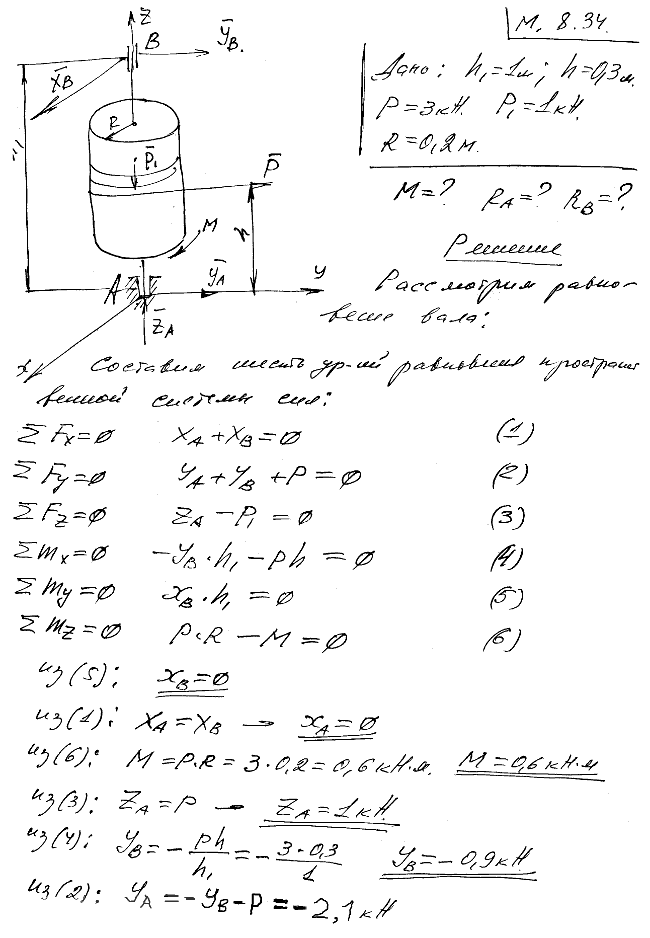 z
B
Y̅B.
X̅B
R
P̅1
P̅
M
h
A
Y̅A
y
Z̅A
x
М. 8.34.
Дано: h1=1м; h=0,3м.
P=3кН. P1=1кН.
R=0,2м.
M=? RA=? RB=?
Решение
Рассмотрим равно-
весие вала:
Составим шесть ур-ий равновесия пространст
венной системы сил:
ΣFx=0 XA+XB=0 (1)
ΣFy=0 YA+YB+P=0 (2)
ΣFz=0 ZA-P1=0 (3)
Σmx=0 -YB·h1-Ph=0 (4)
Σmy=0 XB·h1=0 (5)
Σmz=0 P·R-M=0 (6)
из(5): XB=0
из(1): XA=XB → XA=0
из(6): M=P·R=3·0,2=0,6кН·м. M=0,6кН·м
из(3): ZA=P → ZA=1кН.
из(4): YB=-Ph/h1=-3·0,3/1 YB=-0,9кН.
из(2): YA=-YB-P=-2,1кН